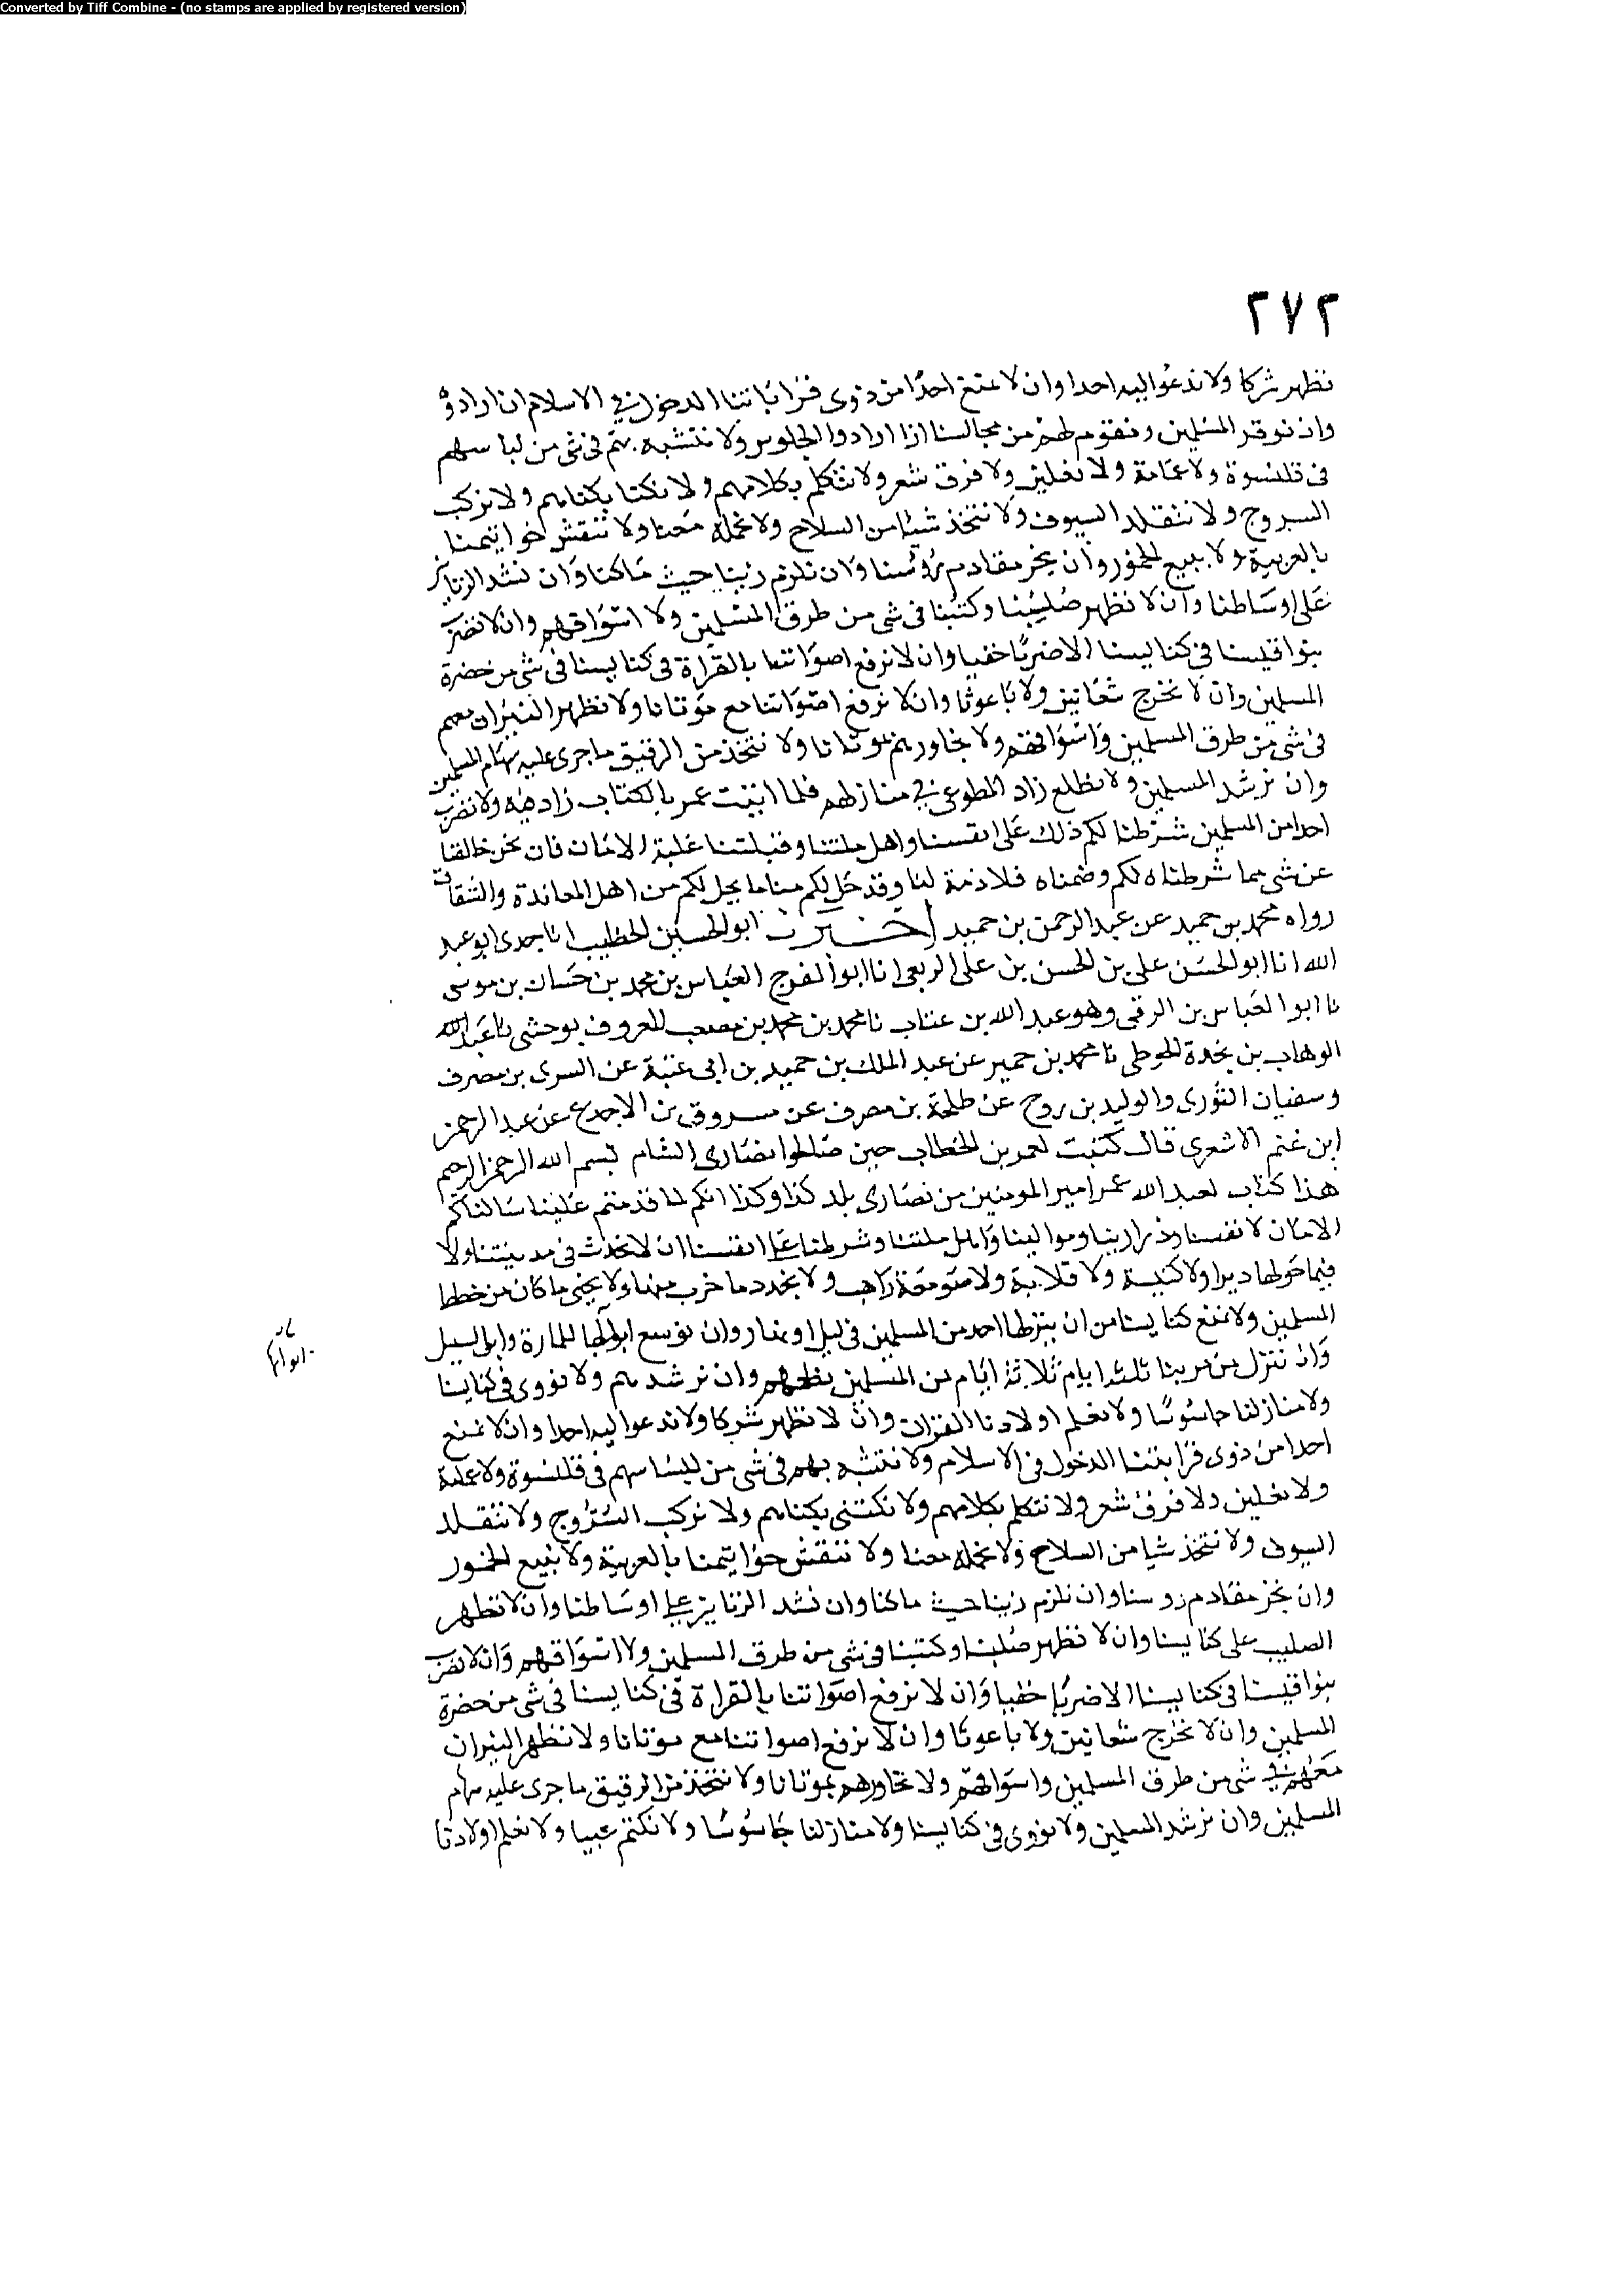 Converted by Tiff Combine - (no stamps are applied by registered version)
٢٧٢
نظهر شركا ولا ندعوا اليه احدا وان لا نمنع احدا من ذوى قراباتنا الدخول في الاسلام ان ارادوه
وان نوقر المسلمين ونقوم لهم من مجالسنا اذا ارادوا الجلوس ولا نتشبه بهم فى شى من لباسهم
فى قلنسوة ولا عمامة ولا نعلين ولا فرق شعر ولا نتكلم بكلامهم ولا نكتنا بكناهم ولا نركب
السروج ولا نتقلد السيوف ولا نتخذ شيئا من السلاح ولا نحمله معنا ولا ننقش خواتيمنا
بالعربية ولا نبيع الخمور وان نجز مقادم رؤسنا وان نلزم زينا حيث ماكنا وان نشد الزنانير
على اوساطنا وان لا نظهر صليبنا وكتبنا فى شى من طرق المسلمين ولا اسواقهم وان لا نضرب
بنواقيسنا فى كنايسنا الا ضربا خفيا وان لا نرفع اصواتنا بالقراة فى كنايسنا فى شى من حضرة
المسلمين وان لا نخرج شعانين ولا باعوثا وان لا نرفع اصواتنا مع موتانا ولا نظهر النيران معهم
فى شى من طرق المسلمين واسواقهم ولا نجاورهم بموتانا ولا نتخذ من الرقيق ماجرى عليه سهام المسلمين
وان نرشد المسلمين ولا نطلع زاد المطوعى في منازلهم فلما اتيت عمر بالكتاب زاد فيه ولا نضرب
احدا من المسلمين شرطنا لكم ذلك على انفسنا واهل ملتنا وقبلتنا عليه الامان فان نحن خالفنا
عن شى مما شرطناه لكم وضمناه فلا ذمة لنا وقد حل لكم منا ما يحل لكم من اهل المعاندة والشقاق
رواه محمد بن حميد عن عبد الرحمن بن حميد اخبرنا ابو الحسين الخطيب انا جدى ابو عبد
الله انا ابو الحسن على بن الحسن بن على الربعى انا ابو الفرج العباس بن محمد بن حسان بن موسى
نا ابو العباس بن الزفتى وهو عبد الله بن عتاب نا محمد بن محمد بن مصعب المعروف بوحشى نا عبد الله
الوهاب بن نجدة الحوطى نا محمد بن حمير عن عبد الملك بن حميد بن ابى غنية عن السرى بن مصرف
وسفيان الثورى والوليد بن روح عن طلحة بن مصرف عن مسروق بن الاجدع عن عبد الرحمن
ابن غنم الاشعرى قال كتبت لعمر بن الخطاب حين صالحوا نصارى الشام بسم الله الرحمن الرحيم
هذا كتاب لعبد الله عمر امير المومنين من نصارى بلد كذا وكذا انكم لما قدمتم علينا سالناكم
الامان لانفسنا وذرارينا وموالينا واهل ملتنا وشرطنا على انفسنا ان لا نحدث فى مدينتنا ولا
فيما حولها ديرا ولا كنيسة ولا قلاية ولا صومعة راهب ولا نجدد ما خرب منها ولا نحيى ما كان من خطط
المسلمين ولا نمنع كنايسنا من ان ينزلها احد من المسلمين فى ليل او نهار وان نوسع ابوابها للمارة وابن السبيل
وان ننزل من مر بنا ثلثه ايام ثلاثة ايام من المسلمين نطعمهم وان نرشدهم ولا نووى فى كنايسنا
ولا منازلنا جاسوسا ولا نعلم اولادنا القران وان لا نظهر شركا ولا ندعوا اليه احدا وان لا نمنع
احدا من ذوى قرابتنا الدخول فى الاسلام ولا نتشبه بهم فى شى من لباسهم فى قلنسوة ولا عمامة
ولا نعلين ولا فرق شعر ولا نتكلم بكلامهم ولا نكتنى بكناهم ولا نركب السروج ولا نتقلد
السيوف ولا نتخذ شيا من السلاح ولا نحمله معنا ولا ننقش خواتيمنا بالعربية ولا نبيع الخمور
وان نجز مقادم روسنا وان نلزم زينا حيث ماكنا وان نشد الزنانير على اوساطنا وان لا نظهر
الصليب على كنايسنا وان لا نظهر صلبنا وكتبنا فى شى من طرق المسلمين ولا اسواقهم وان لا نضرب
بنواقيسنا فى كنايسنا الا ضربا خفيا وان لا نرفع اصواتنا بالقراة فى كنايسنا فى شى من حضرة
المسلمين وان لا نخرج شعانين ولا باعوثا وان لا نرفع اصواتنا مع موتانا ولا نظهر النيران
معهم في شى من طرق المسلمين واسواقهم ولا نجاورهم بموتانا ولا نتخذ من الرقيق ما جرى عليه سهام
المسلمين وان نرشد المسلمين ولا نووى فى كنايسنا ولا منازلنا جاسوسا ولا نكتم عيبا ولا نعلم اولادنا